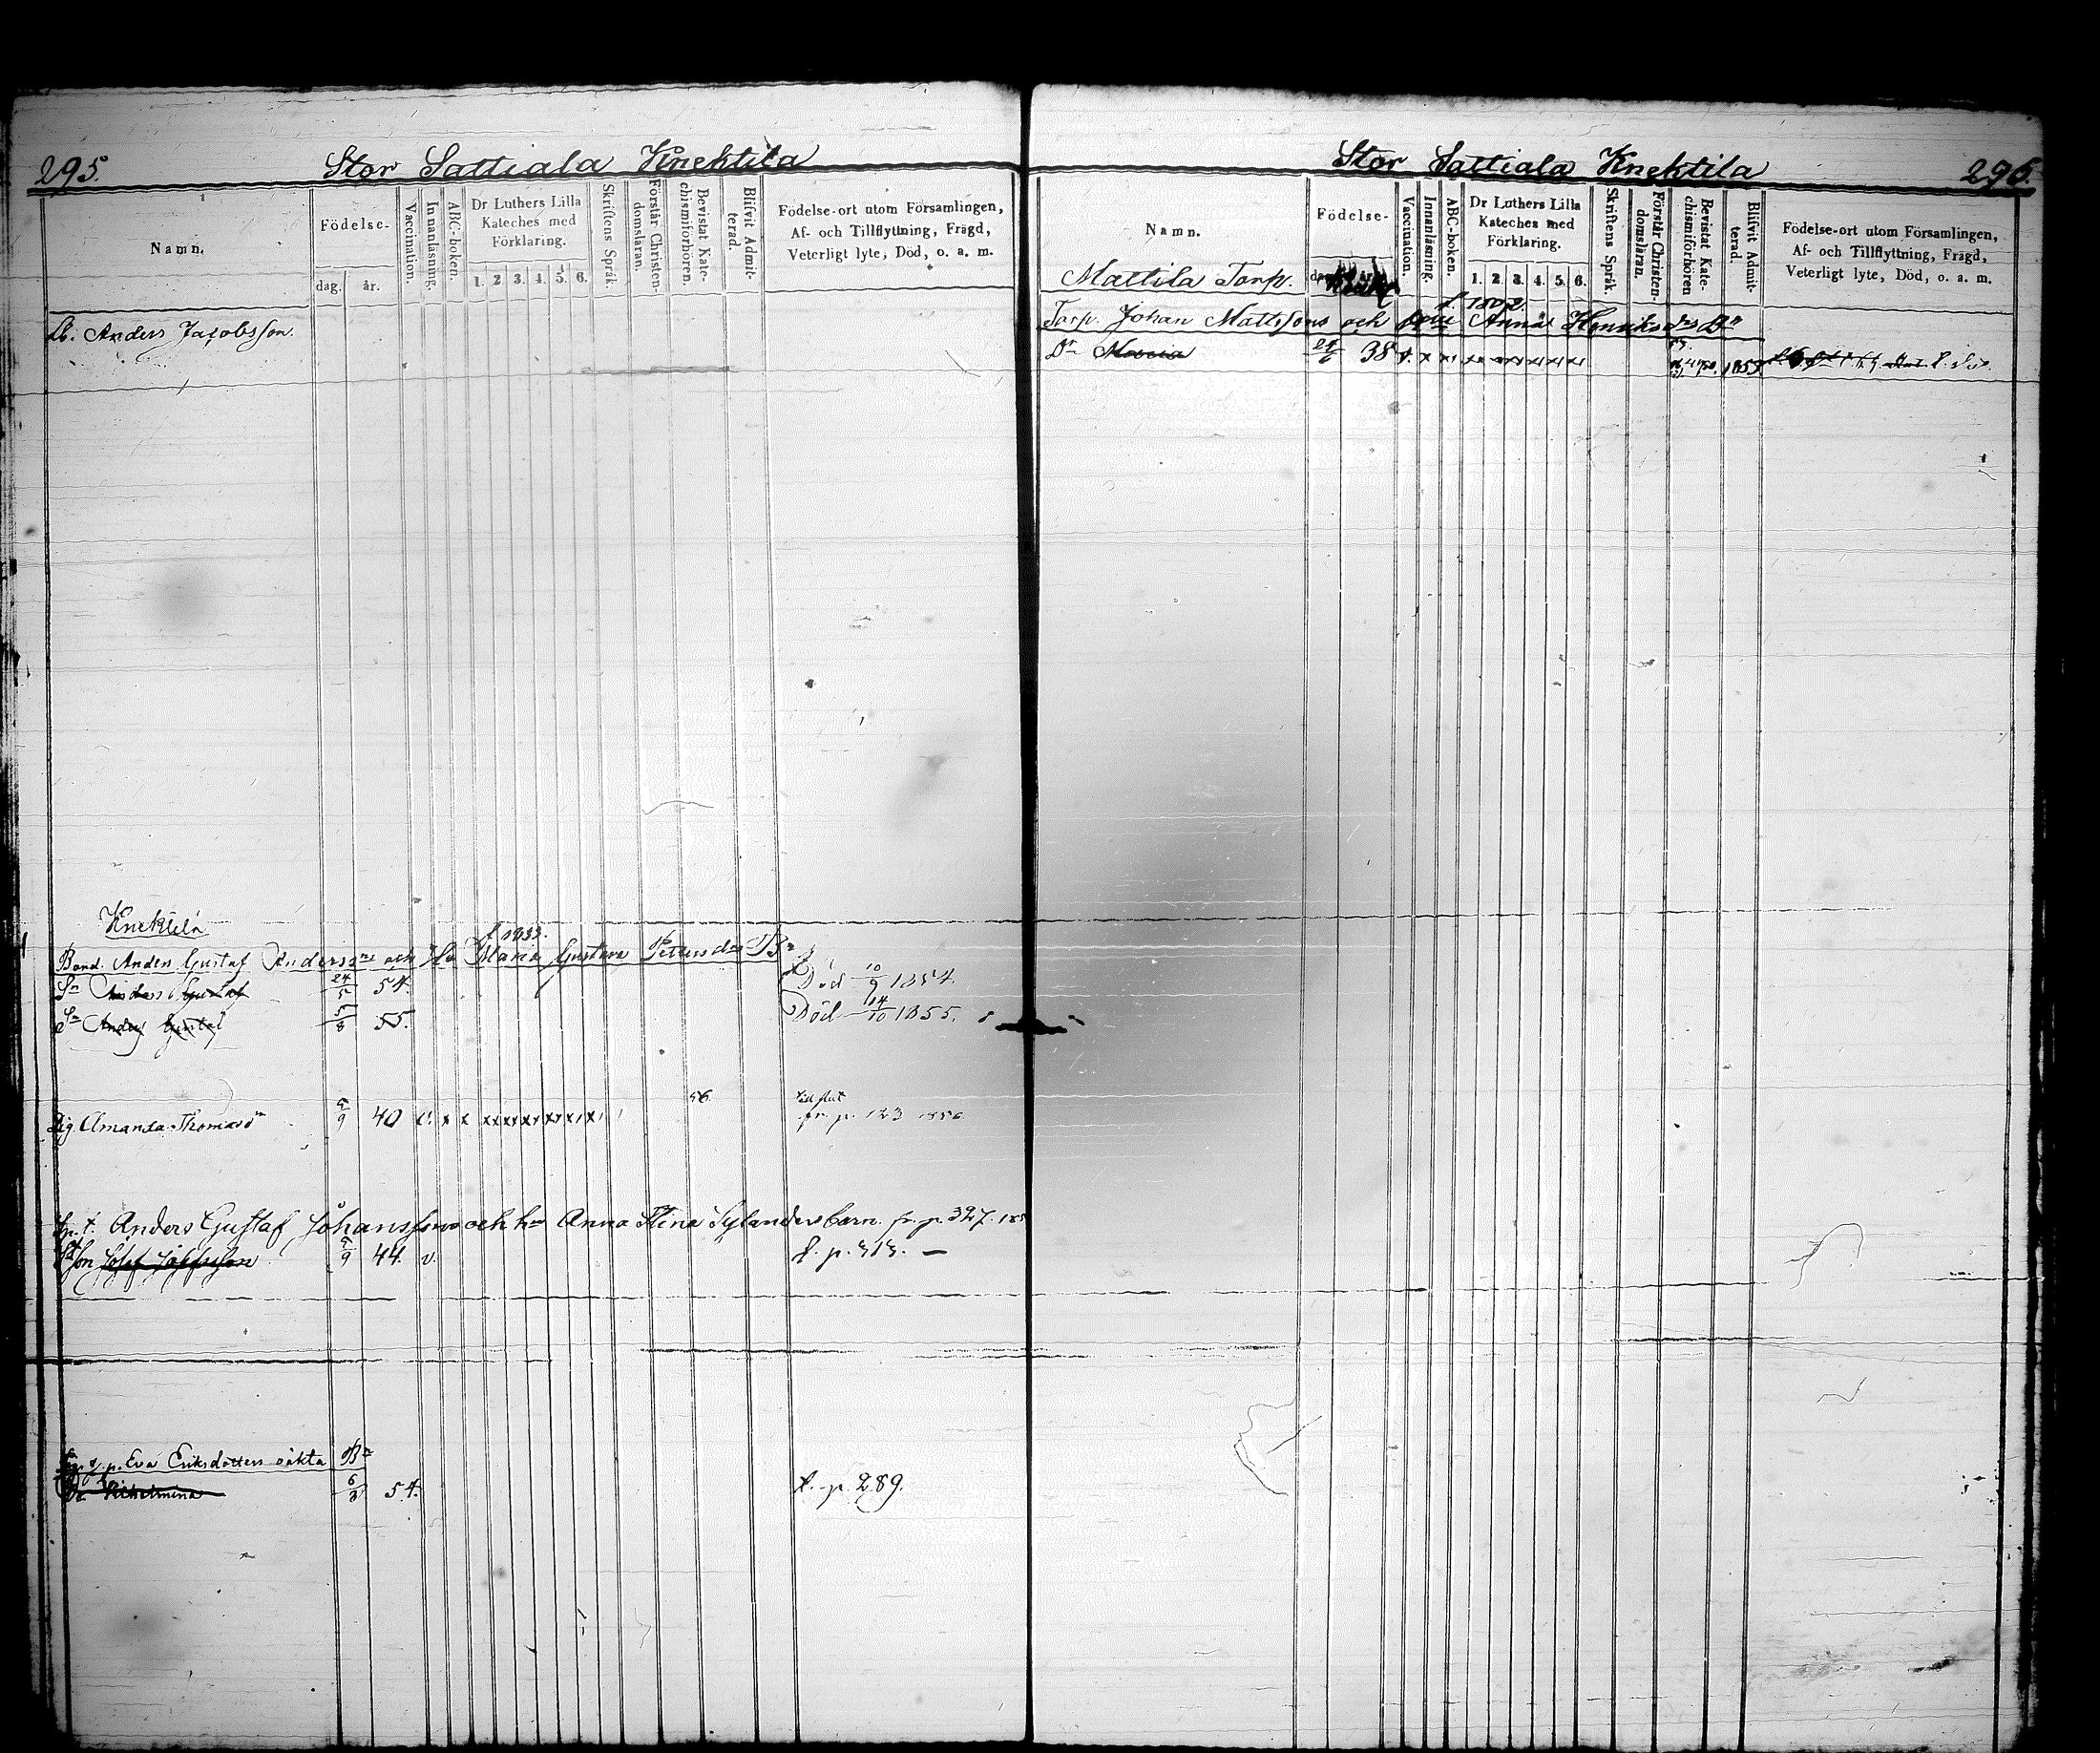 295.
Stor Sattiala Knektila
Namn.
Födelse-
dag. år.
Vaccination.
Innanläsning.
ABC-boken.
Dr Luthers Lilla
Kateches med
Förklaring.
1. 2. 3. 4. 5. 6.
Skriftens Språk.
Förstår Christen-
domsläran.
Bevistat Kate-
chismiförhören.
Blifvit Admit-
terad.
Födelse-ort utom Församlingen,
Af- och Tillflyttning, Frägd,
Veterligt lyte, Död, o. a. m.
Anders Jacobsson.
Knektila
f 1833.
Bond. Anders Gustaf Anderssons och Maria Gustava Petters dr Bn
Sn Anders Gustaf 24/5 54. Död 10/9 1854.
Sn Anders Gustaf 5/8 55. Död 14/10 1855.
Pig. Amanda Thomasd 5/9 40 v. x x xx xx xx xx xx x 56. fr. p. 123 1856
Anders Gustaf Johanssons och hu Anna Stina Sylanders barn. fr. p. 327.
Son 5/9 44. v. f. p. 313. —
Eva Eriksdotters oäkta Bn
Dr Vilhelmina 6/3 54. f. p. 289.
Stor Sattiala Knektila
296.
Namn.
Födelse-
Vaccination.
Innanläsning.
ABC-boken.
Dr Luthers Lilla
Kateches med
Förklaring.
1. 2. 3. 4. 5. 6.
Skriftens Språk.
Förstår Christen-
domsläran.
Bevistat Kate-
chismiförhören
Blifvit Admit-
terad.
Födelse-ort utom Församlingen,
Af- och Tillflyttning, Frägd,
Veterligt lyte, Död, o. a. m.
Mattila Torp.
f. 1802.
Torp. Johan Mattssons och Anna Henriks drs Bn
Dr Maria 38 v. x x x 1855.